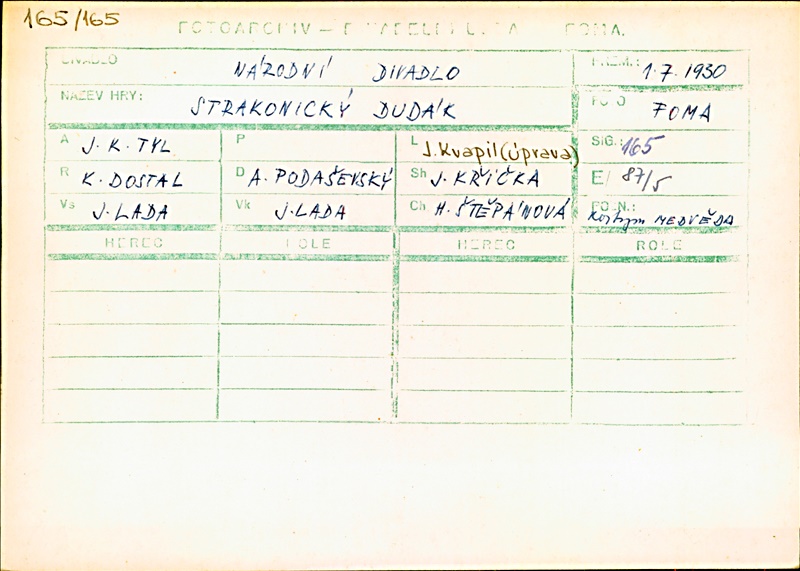 165/165
FOTOARCHIV – FOMA.
DIVADLO NÁRODNÍ DIVADLO PREM.: 1.7.1930
NAZEV HRY: STRAKONICKÝ DUDÁK FOTO FOMA
A J. K. TYL P L J. Kvapil (úprava) SIG.: 165
R K. DOSTAL D A. PODAŠEVSKÝ Sh J. KŘIČKA E/ 87/5
Vs J. LADA Vk J. LADA Ch H. ŠTĚPÁNOVÁ POZN.: kostym MEDVĚDA
HEREC ROLE HEREC ROLE